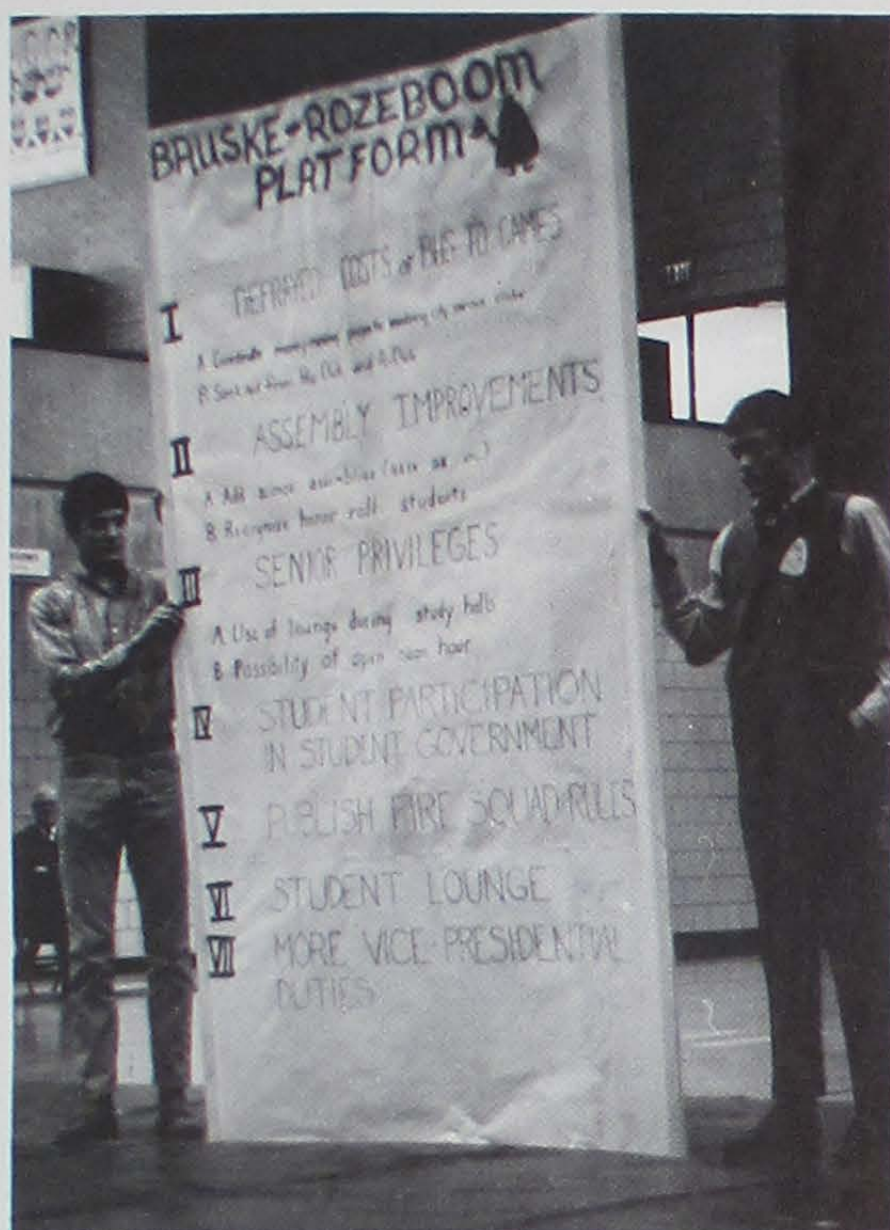 BAUSKE-ROZEBOOM
PLATFORM
I DEFRAYED COSTS of BUS TO GAMES
A. Coordinate money making projects
B. and
II ASSEMBLY IMPROVEMENTS
A. assemblies
B. Recognize honor roll students
III SENIOR PRIVILEGES
A. Use of lounge during study halls
B. Possibility of open noon hour
IV STUDENT PARTICIPATION
IN STUDENT GOVERNMENT
V PUBLISH FIRE SQUAD RULES
VI STUDENT LOUNGE
VII MORE VICE-PRESIDENTIAL
DUTIES
EXIT